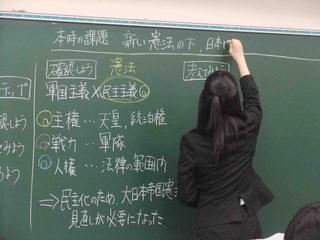 本時の課題 新しい憲法の下、日本は
確認しよう 憲法 考えてみよう
軍国主義×民主主義
主権…天皇、統治権
戦力…軍隊
人権…法律の範囲内
⇒民主化のため、大日本帝国憲法
見直しが必要になった
ップ
しよう
みよう
よう